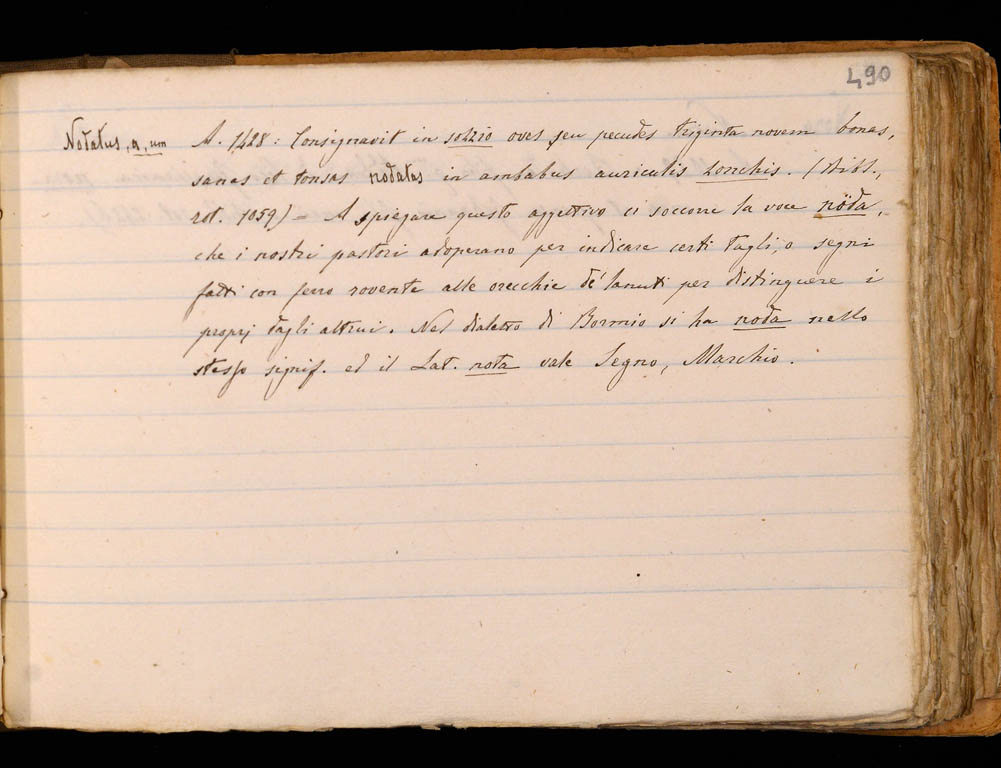 490
Nodatus, a, um A. 1428: Consignavit in sozzio oves seu pecudes triginta novem bonas,
sanas et tonsas nodatas in ambabus auriculis zonchis. (Bibl.,
rot. 1059) = A spiegare questo aggettivo ci soccorre la voce nöda,
che i nostri pastori adoperano per indicare certi tagli, o segni
fatti con ferro rovente alle orecchie de' lanuti per distinguere i
proprj dagli altrui. Nel dialetto di Bormio si ha noda nello
stesso signif. ed il Lat. nota vale Segno, Marchio.